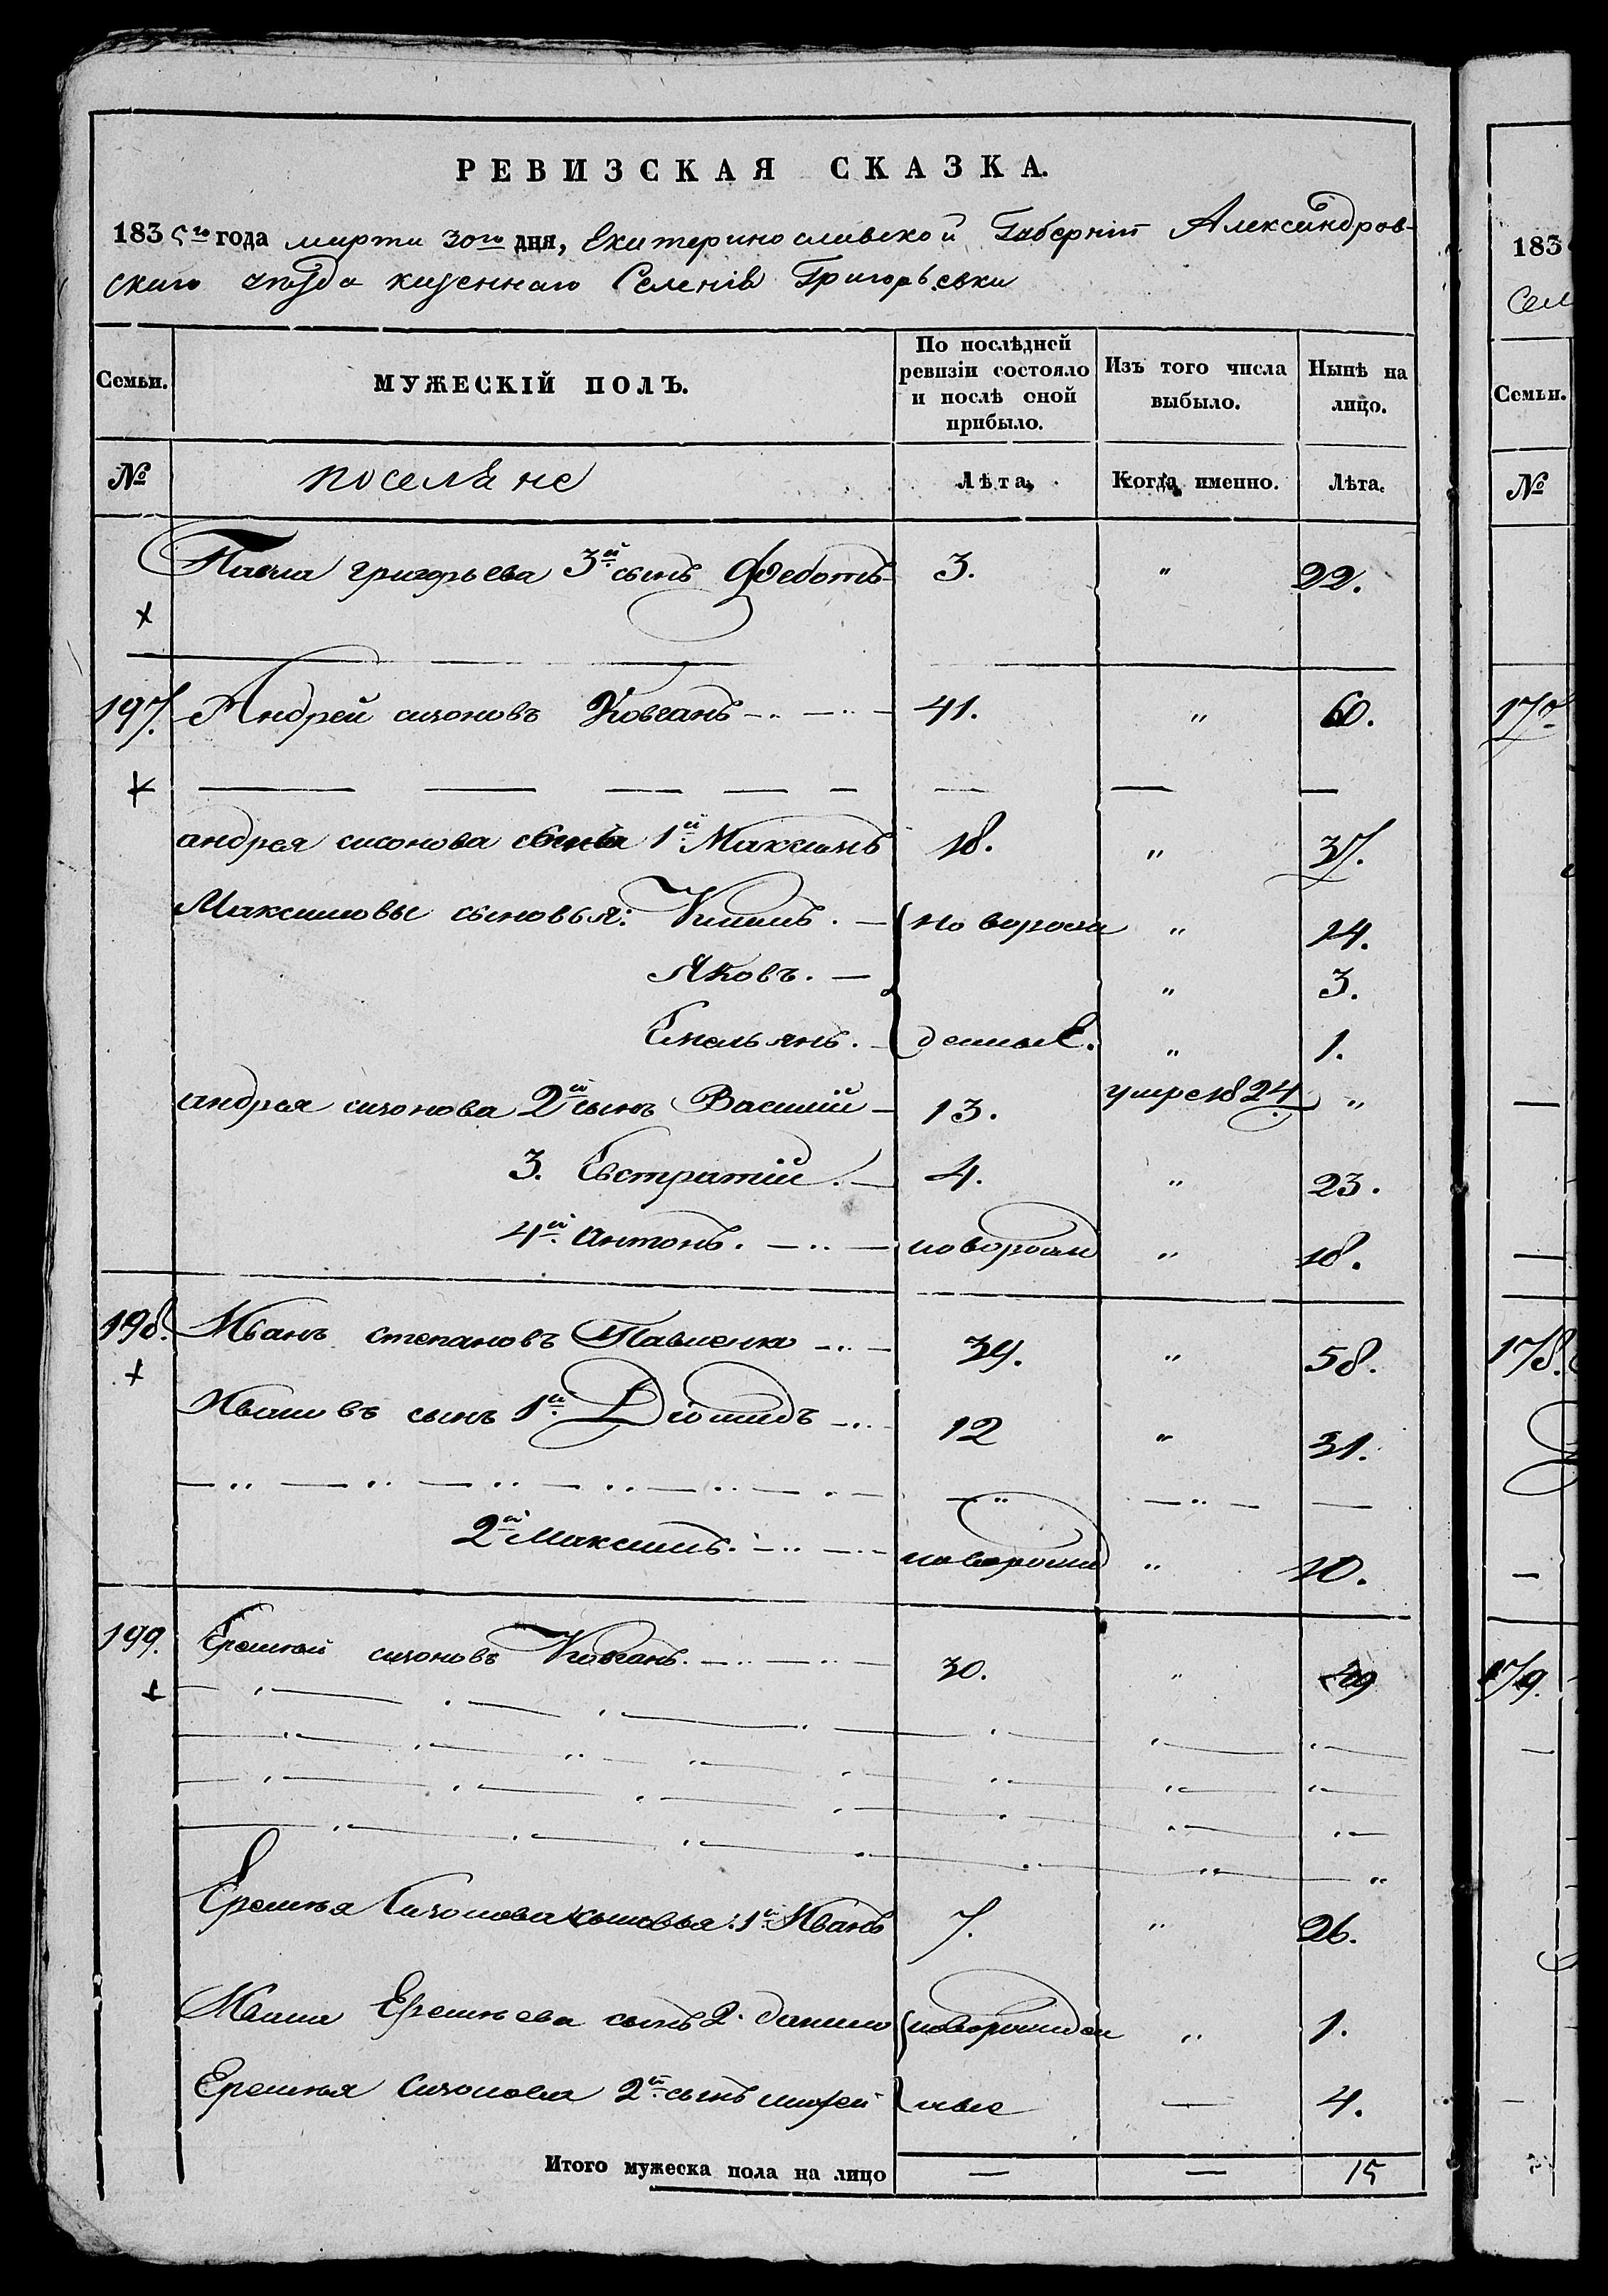 РЕВИЗСКАЯ СКАЗКА.
1835го года марта 30го дня, Екатеринославской Губерніи Александров-
скаго уезда казеннаго Селенія Григорьевки
Семьи. МУЖЕСКІЙ ПОЛЪ. По послѣдней ревизіи состояло и послѣ оной прибыло. Изъ того числа выбыло. Нынѣ на лицо.
№ поселяне Лѣта. Когда именно. Лѣта.
Павла григорьева 3й сынъ Федотъ 3. " 22.
197. Андрей сизоновъ Ковганъ 41. " 60.
андрея сисонова сына 1й Максимъ 18. " 37.
Максимовы сыновья: Климъ. новорож " 14.
Яковъ. " 3.
Емельянъ. денные. " 1.
андрея сизонова 2й сынъ Василій 13. умре 1824 "
3. Евстратій. 4. " 23.
4й Антонъ. новорожд " 18.
198. Иванъ степановъ Павленко 39. " 58.
Ивановъ сынъ 1й Діомидъ 12 " 31.
2й Максимъ. новорожд " 10.
199. Еремей сизоновъ Ковганъ. 30. " 49
Еремея Сизонова сыновья: 1й Иванъ 7. " 26.
Ивана Еремеева сынъ 2. данило новорожден " 1.
Еремея Сизонова 2й сынъ 4.
ные
Итого мужеска пола на лицо — — 15
183
Сел
Семьи.
№
178.
179.